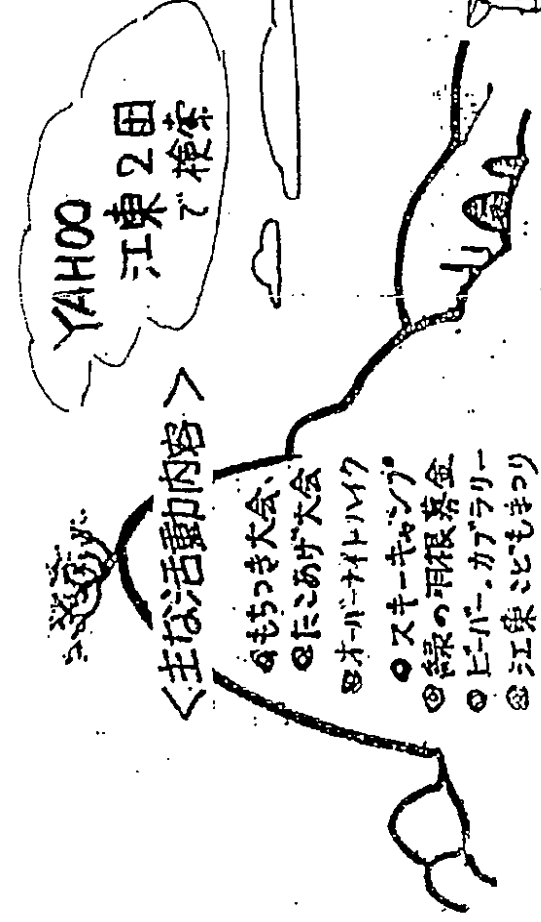 YAHOO
江東2団
で検索
<主な活動内容>
もちつき大会、
たこあげ大会
オーバーナイトハイク
スキーキャンプ
緑の羽根募金
ビーバー、カブラリー
江東こどもまつり